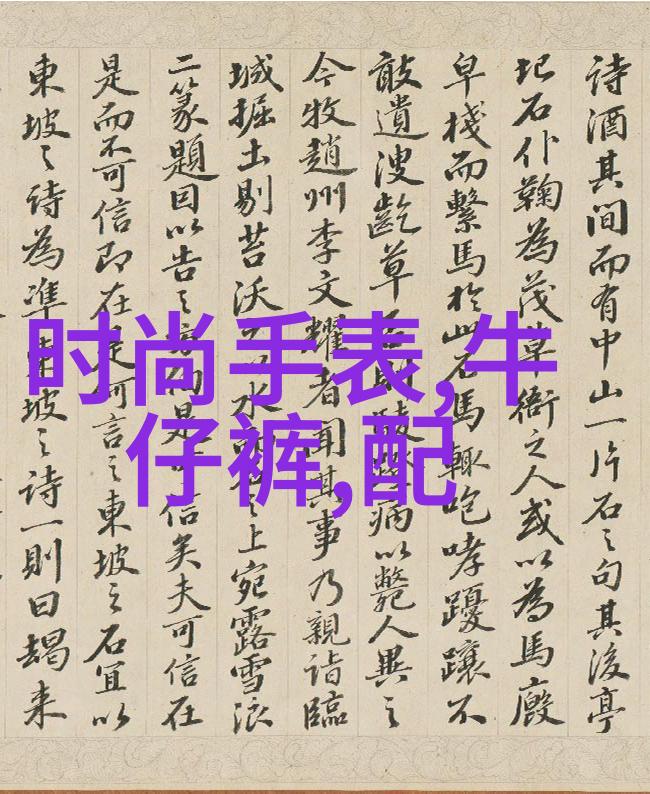 时尚手表,牛
仔裤,配
詩酒其間而有中山一片石之句其後亭
圮石仆鞠為茂草衙之人或以為馬廄
皁棧而繫馬於此石馬輒咆哮躩躟不
敢遺溲齕草則病以斃人異之
今牧趙州李文耀者聞其事乃親詣臨
城掘土剔苔沃水之上宛露雪浪
二篆題因以告之是信矣夫可信在
是而不可信即在是何言之東坡之石宜以
東坡之詩為準東坡之詩一則曰朅来